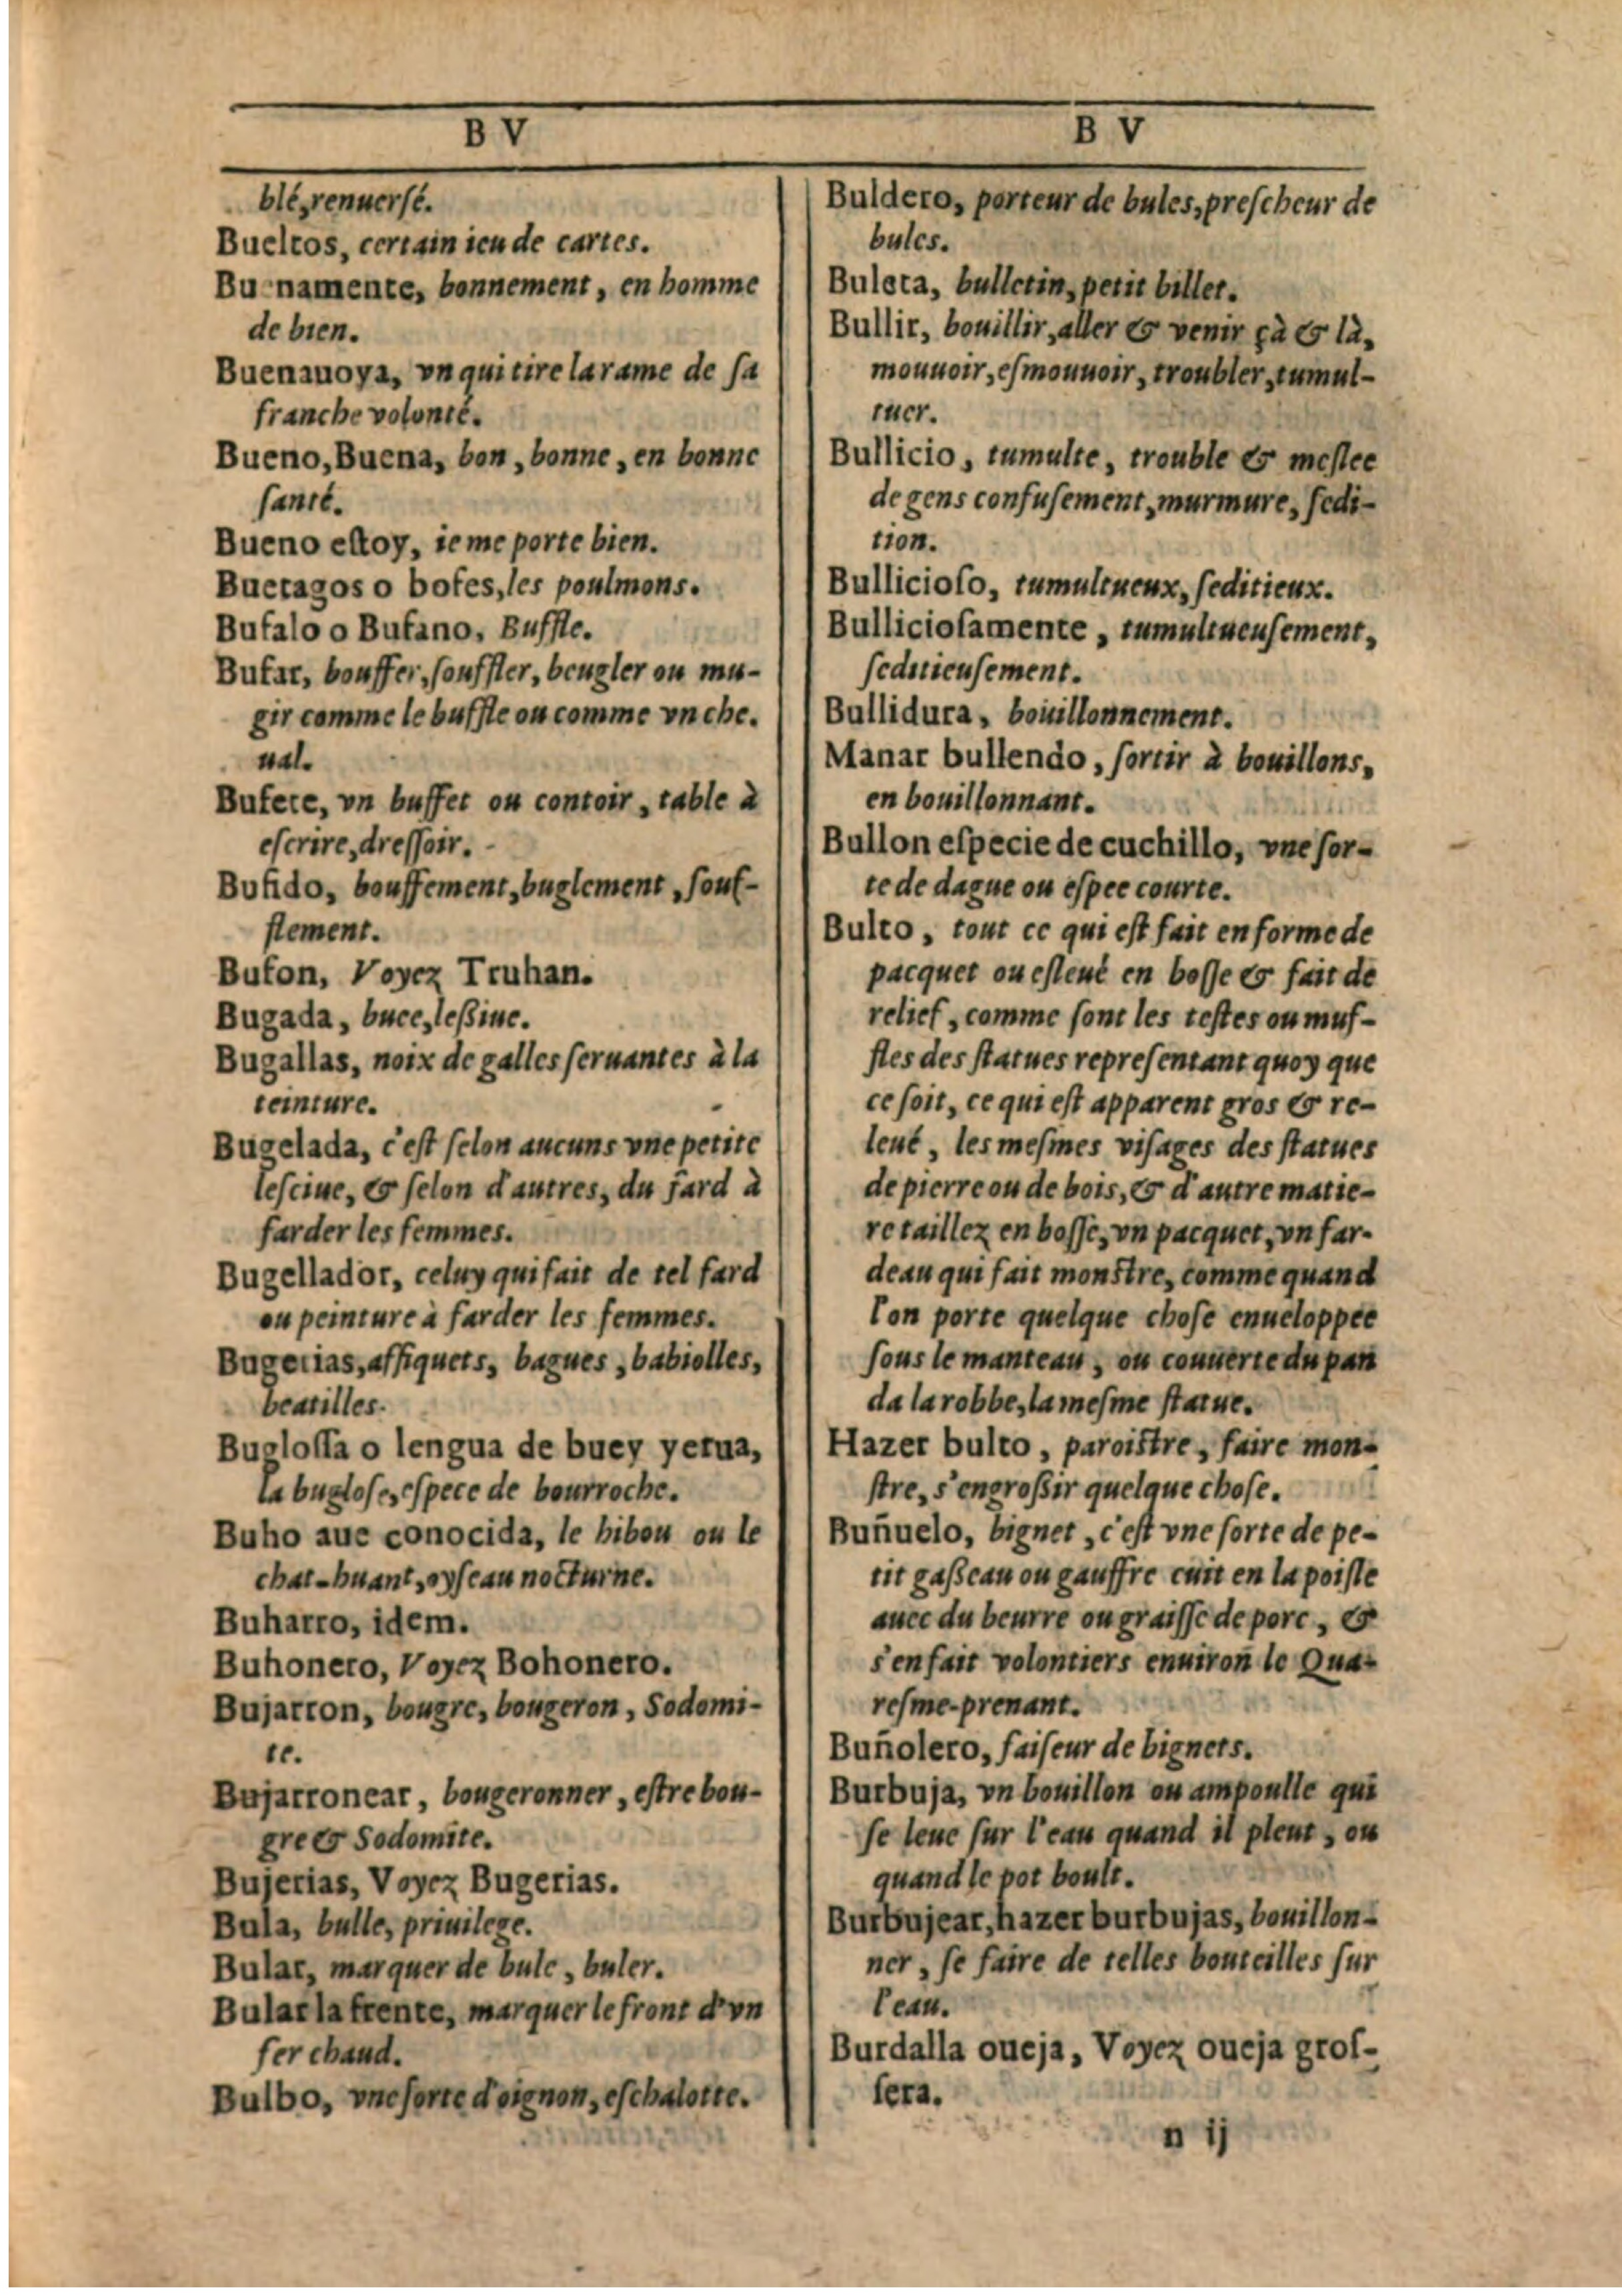 B V
blé, renuersé.
Bueltos, certain ieu de cartes.
Buenamente, bonnement, en homme
de bien.
Buenauoya, vn qui tire la rame de sa
franche volonté.
Bueno, Buena, bon, bonne, en bonne
santé.
Bueno estoy, ie me porte bien.
Buetagos o bofes, les poulmons.
Bufalo o Bufano, Buffle.
Bufar, bouffer, souffler, beugler ou mu-
gir comme le buffle ou comme vn che.
ual.
Bufete, vn buffet ou contoir, table à
escrire, dressoir.
Bufido, bouffement, buglement, souf-
flement.
Bufon, Voyez Truhan.
Bugada, buee, leßiue.
Bugallas, noix de galles seruantes à la
teinture.
Bugelada, c'est selon aucuns vne petite
lesciue, & selon d'autres, du fard à
farder les femmes.
Bugellador, celuy qui fait de tel fard
ou peinture à farder les femmes.
Bugerias, affiquets, bagues, babiolles,
beatilles.
Buglossa o lengua de buey yerua,
la buglose, espece de bourroche.
Buho aue conocida, le hibou ou le
chat-huant, oyseau nocturne.
Buharro, idem.
Buhonero, Voyez Bohonero.
Bujarron, bougre, bougeron, Sodomi-
te.
Bujarronear, bougeronner, estre bou-
gre & Sodomite.
Bujerias, Voyez Bugerias.
Bula, bulle, priuilege.
Bular, marquer de bule, buler.
Bular la frente, marquer le front d'vn
fer chaud.
Bulbo, vne sorte d'oignon, eschalotte.
B V
Buldero, porteur de bules, prescheur de
bules.
Buleta, bulletin, petit billet.
Bullir, bouillir, aller & venir çà & là,
mouuoir, esmouuoir, troubler, tumul-
tuer.
Bullicio, tumulte, trouble & meslee
de gens confusement, murmure, sedi-
tion.
Bullicioso, tumultueux, seditieux.
Bulliciosamente, tumultueusement,
seditieusement.
Bullidura, bouillonnement.
Manar bullendo, sortir à bouillons,
en bouillonnant.
Bullon especie de cuchillo, vne sor-
te de dague ou espee courte.
Bulto, tout ce qui est fait en forme de
pacquet ou esleué en bosse & fait de
relief, comme sont les testes ou muf-
fles des statues representant quoy que
ce soit, ce qui est apparent gros & re-
leué, les mesmes visages des statues
de pierre ou de bois, & d'autre matie-
re taillez en bosse, vn pacquet, vn far-
deau qui fait monstre, comme quand
l'on porte quelque chose enueloppee
sous le manteau, ou couuerte du pan
da la robbe, la mesme statue.
Hazer bulto, paroistre, faire mon-
stre, s'engroßir quelque chose.
Buñuelo, bignet, c'est vne sorte de pe-
tit gaßeau ou gauffre cuit en la poisle
auec du beurre ou graisse de porc, &
s'en fait volontiers enuiron le Qua-
resme-prenant.
Buñolero, faiseur de bignets.
Burbuja, vn bouillon ou ampoulle qui
se leue sur l'eau quand il pleut, ou
quand le pot boult.
Burbujear, hazer burbujas, bouillon-
ner, se faire de telles bouteilles sur
l'eau.
Burdalla oueja, Voyez oueja gros-
sera.
n ij